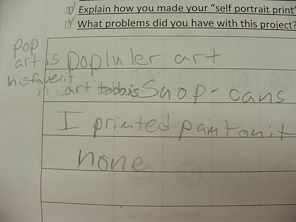 Explain how you made your "self portrait print"
What problems did you have with this project?
pop
art is popluler art
his faverit
art is Suop - cans
I printed paint on it
none